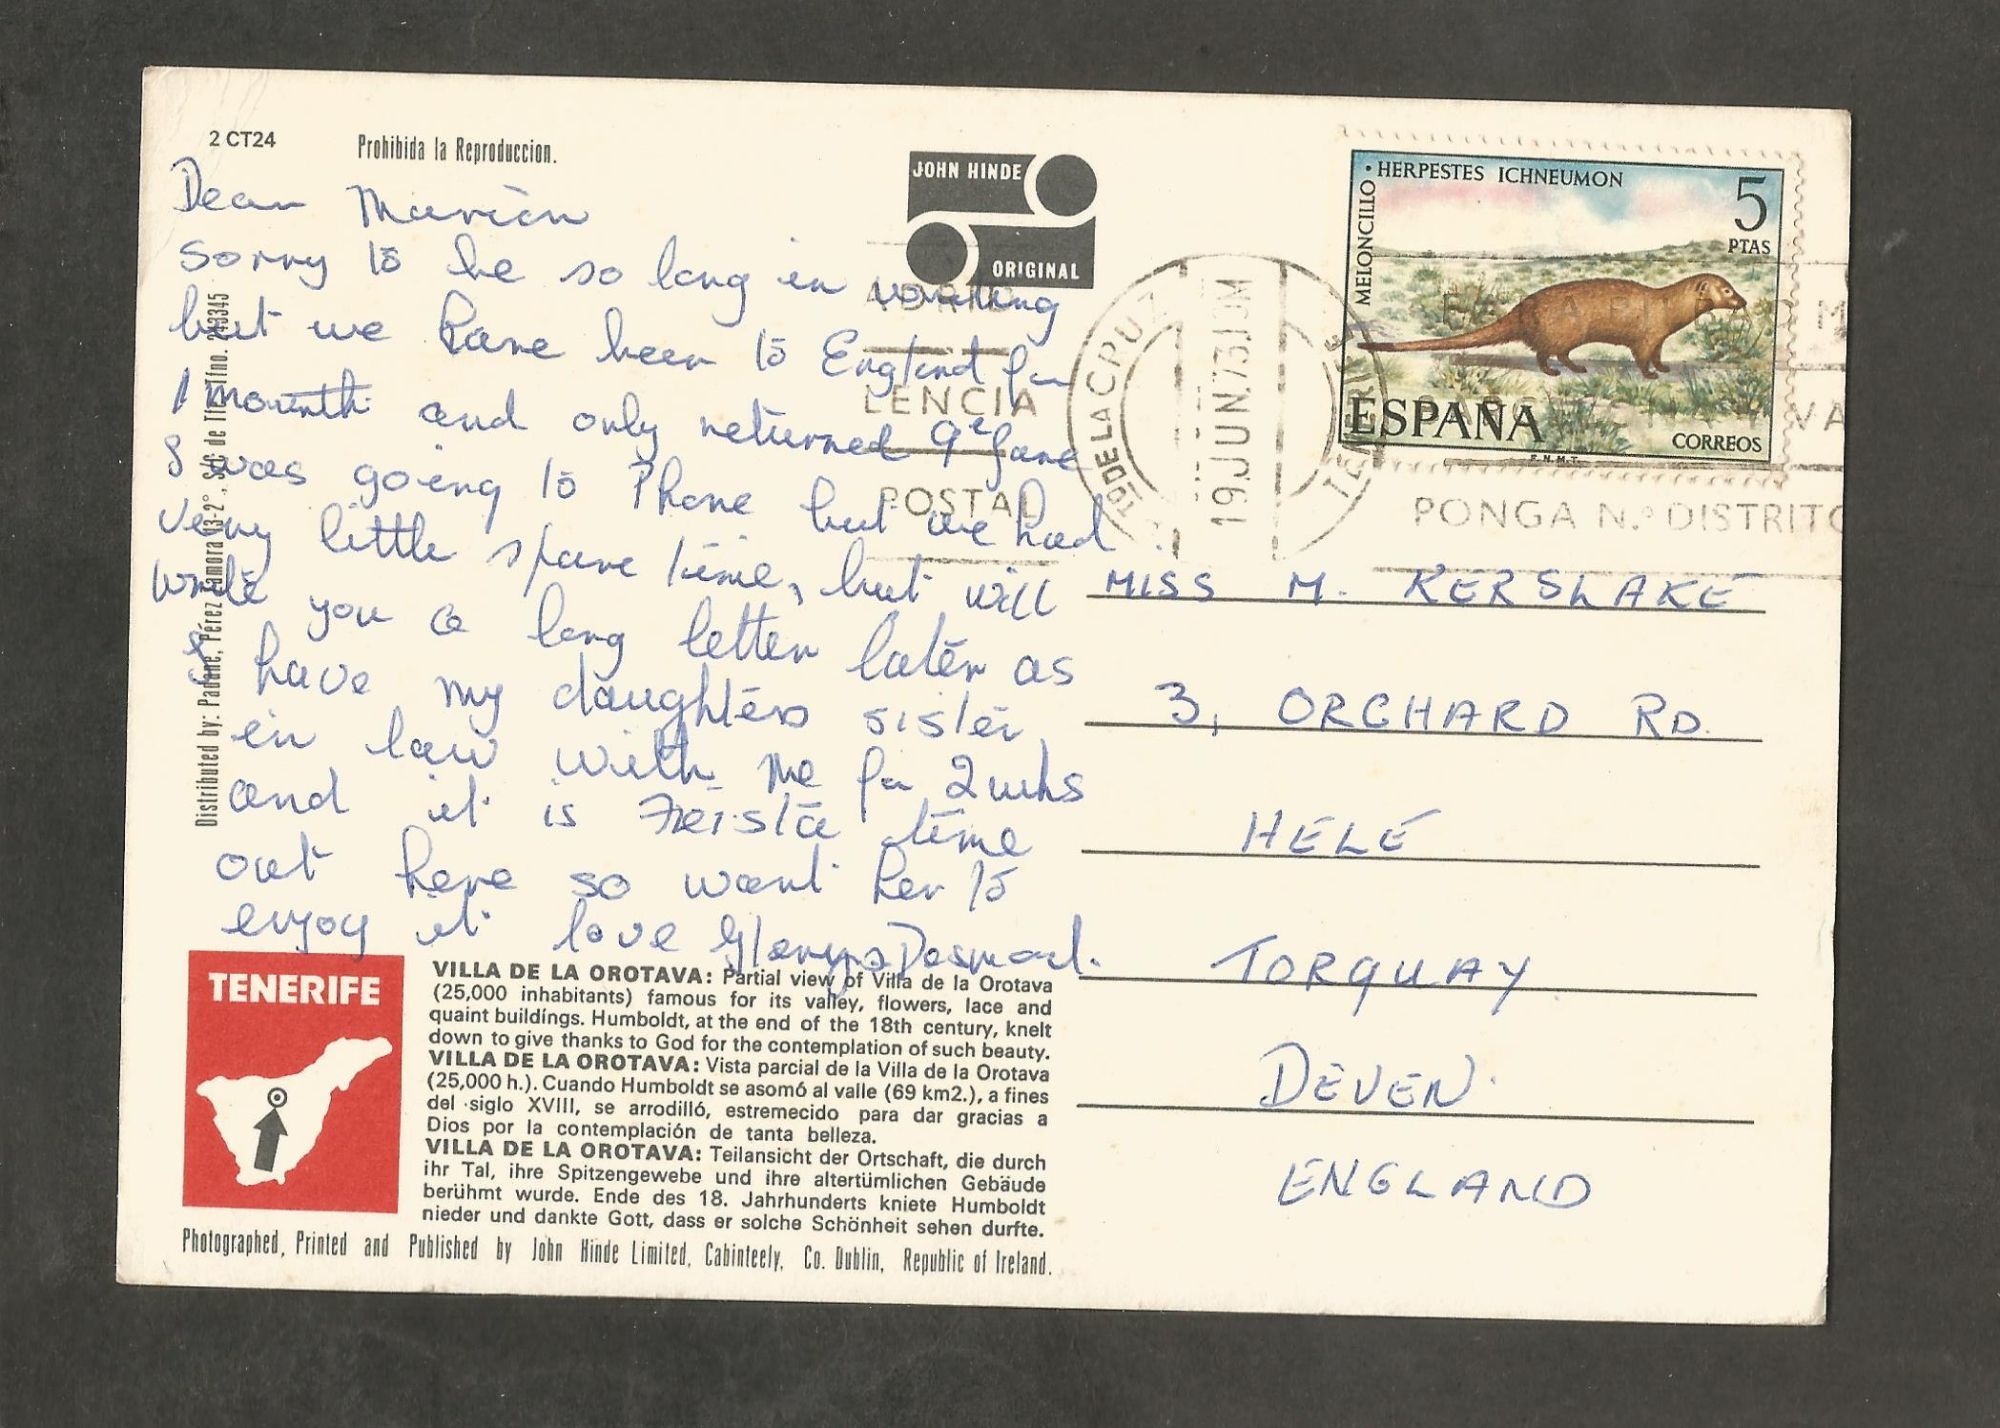 2 CT24
Prohibida la Reproduccion.
Dear Marion
Sorry to be so long in writing
but we have been to England for
1 month and only returned 9e June
I was going to Phone but we had
very little spare time, but will
write you a long letter later as
I have my daughters sister
in law with me for 2 wks
and it is time
out here so want her to
enjoy it love Desmond.
Distributed by: Padane, Pérez Zamora 13-2°., S/C de Tfe. Tlfno. 243345
JOHN HINDE
ORIGINAL
PTO DE LA CRUZ
19.JUN.73.19M
TENERIFE
LENCIA
POSTAL
PONGA N.º DISTRITO
MELONCILLO · HERPESTES ICHNEUMON
5
PTAS
ESPAÑA
CORREOS
F.N.M.T.
MISS M. KERSLAKE
3, ORCHARD RD.
HELE
TORQUAY
DEVEN.
ENGLAND
TENERIFE
VILLA DE LA OROTAVA: Partial view of Villa de la Orotava
(25,000 inhabitants) famous for its valley, flowers, lace and
quaint buildings. Humboldt, at the end of the 18th century, knelt
down to give thanks to God for the contemplation of such beauty.
VILLA DE LA OROTAVA: Vista parcial de la Villa de la Orotava
(25,000 h.). Cuando Humboldt se asomó al valle (69 km2.), a fines
del siglo XVIII, se arrodilló, estremecido para dar gracias a
Dios por la contemplación de tanta belleza.
VILLA DE LA OROTAVA: Teilansicht der Ortschaft, die durch
ihr Tal, ihre Spitzengewebe und ihre altertümlichen Gebäude
berühmt wurde. Ende des 18. Jahrhunderts kniete Humboldt
nieder und dankte Gott, dass er solche Schönheit sehen durfte.
Photographed, Printed and Published by John Hinde Limited, Cabinteely, Co. Dublin, Republic of Ireland.